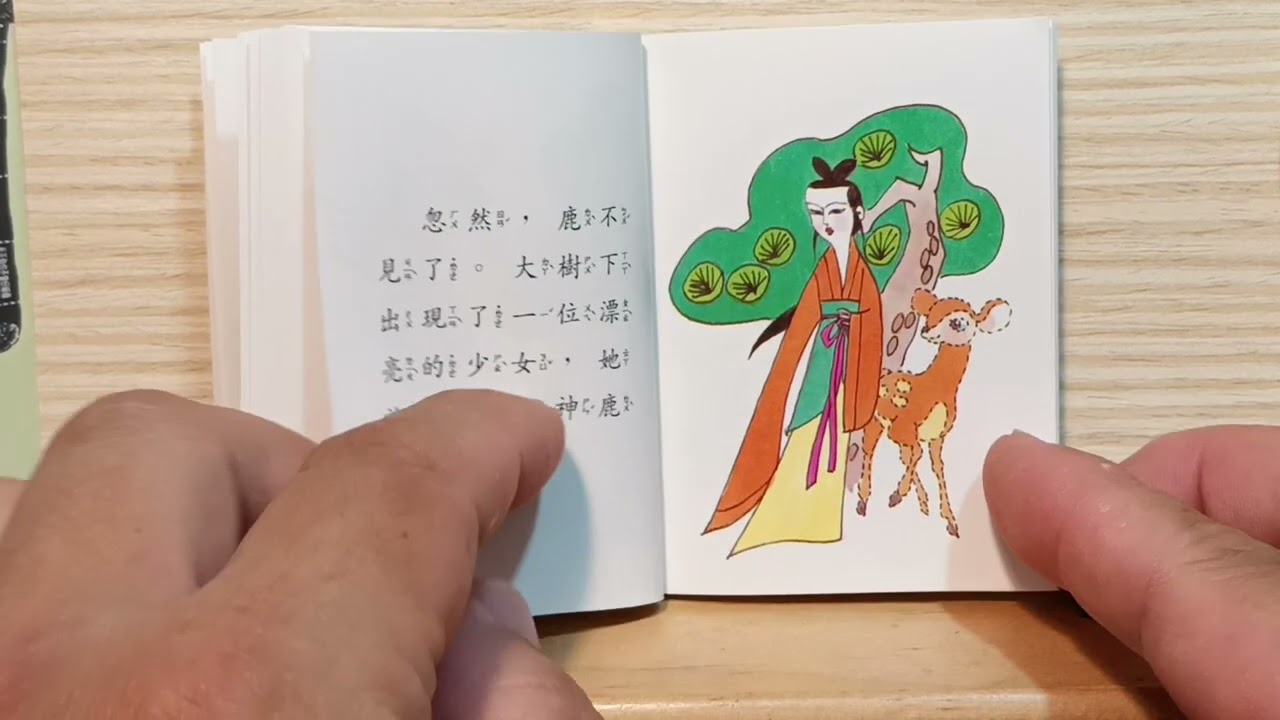 忽然，鹿不
見了。大樹下
出現了一位漂
亮的少女，她
神鹿